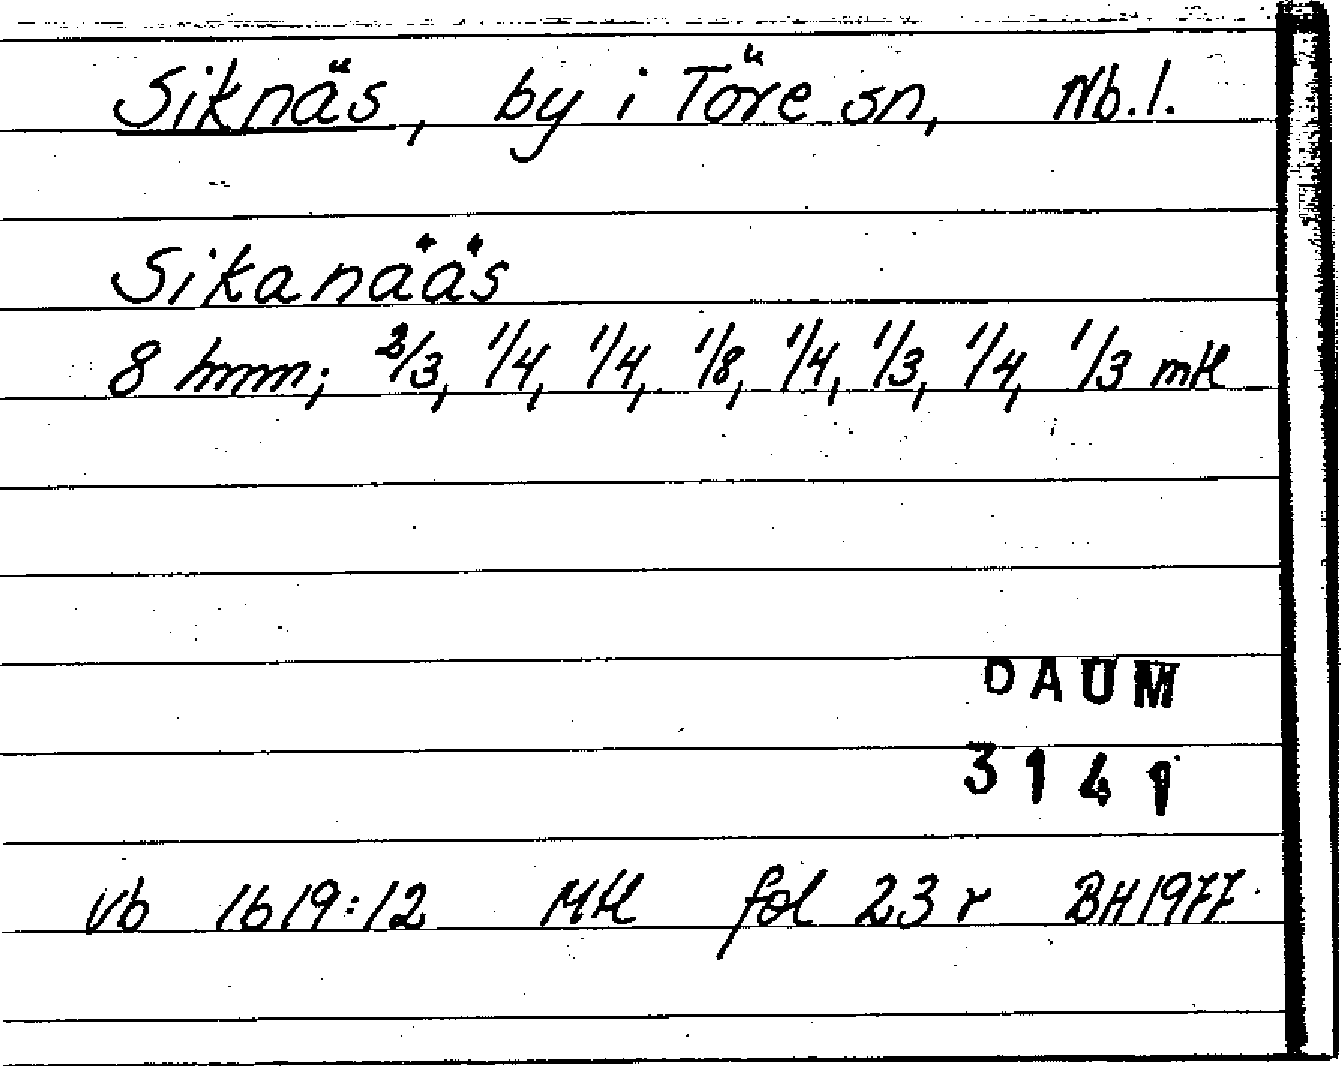 Siknäs, by i Töre sn, Nb.l.
Sikanääs
8 hmm; 2/3, 1/4, 1/4, 1/8, 1/4, 1/3, 1/4, 1/3 mtl
DAUM
3141
Vb 1619:12 Mtl fol 23 r BH 1977